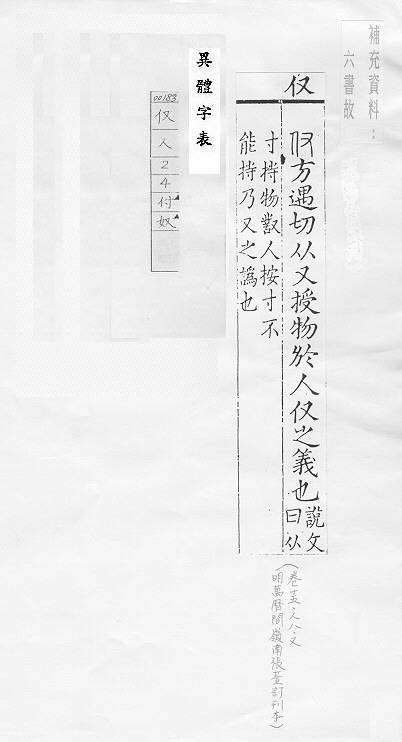 補充資料：
六書故
仅
仅方遇切从又授物於人仅之義也說文曰从
寸持物對人按寸不
能持乃又之譌也
(卷十五‧人八‧又
明萬曆間嶺南張萱訂刊本)
異體字表
00183
仅
人
2
4
付
奴